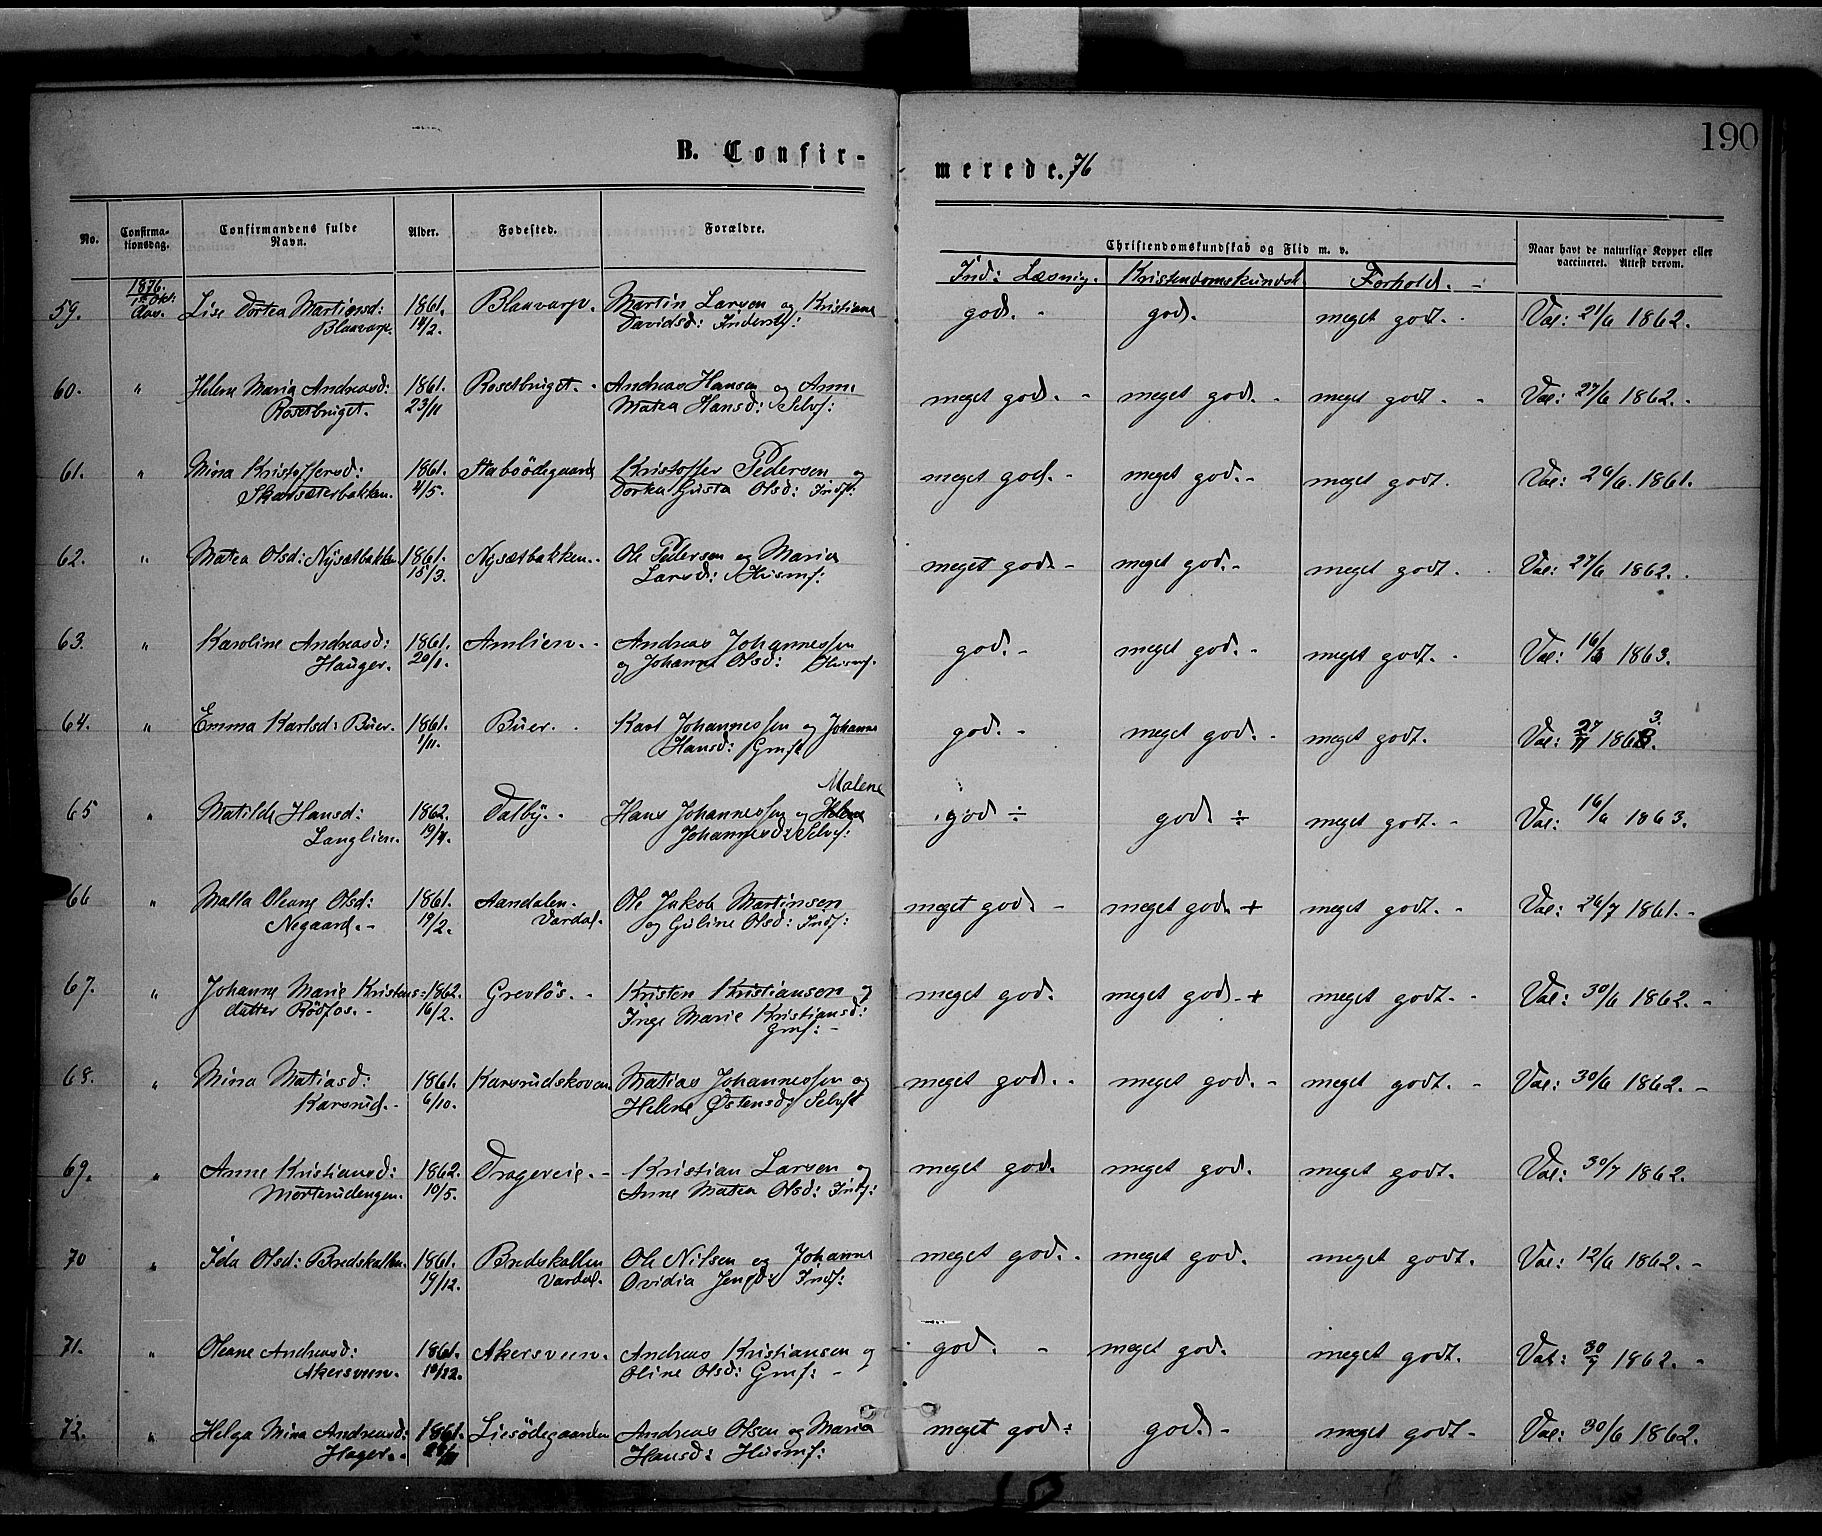 190
B. Confir-
merede. 76
No.
Confirma-
tionsdag.
Confirmandens fulde
Navn.
Alder.
Fødested.
Forældre.
Christendomskundskab og Flid m. v.
Naar havt de naturlige Kopper eller
vaccineret. Attest derom.
Ind: Læsnig.
Kristendomskundsk
Forhold.
1876.
1ste Okt:
59. Lise Dortea Martinsd: 1861. Blaavarp. Martin Larsen og Kristiane god. god. meget godt. Vac: 21/6 1862.
Blaavarp. 14/2. Davidsd: Inderstf:
60. " Helena Maria Andreasd: 1861. Rosetbruget. Andreas Hansen og Anne meget god. meget god. meget godt. Vac: 27/6 1862.
Rosetbruget. 23/11 Matea Hansd: Selvf:
61. " Mina Kristoffersd: 1861. Stabøödegaard Kristoffer Pedersen og meget god. meget god. meget godt. Vac: 26/6. 1861.
Skansæterbakken. 4/5. Dortea Gusta Olsd: Indf:
62. " Matea Olsd: Nysætbakken 1861. Nysætbakken. Ole Pedersen og Maria meget god. meget god. meget godt. Vac: 27/6 1862.
15/3. Larsd: Husmf:
63. " Karoline Andreasd: 1861. Amlien. Andreas Johannessen god. meget god. meget godt. Vac: 16/3 1863.
Hauger. 20/1. og Johanne Olsd: Husmf.
64. " Emma Karlsd: Büer. 1861. Büer. Karl Johannessen og Johanne god. meget god. meget godt. Vac: 27/7 1863.
1/11. Hansd: Gmf
3.
Malene
65 " Matilde Hansd: 1862. Dalby. Hans Johannessen og god ÷ god ÷ meget godt. Vac: 16/6 1863.
Langlien. 19/4. Johannesd: Selvf:
66 " Malla Oleane Olsd: 1861. Aandalen. Ole Jakob Martinsen meget god. meget god. + meget godt. Vac: 26/7 1861.
Negaard. 19/2. Vardal. og Guline Olsd: Indf:
67. " Johanne Marie Kristens- 1862. Grevløs. Kristen Kristiansen og meget god. meget god. + meget godt. Vac: 30/6 1862.
datter Rödfos. 16/2. Inge Marie Kristiansd:
Gmf:
68. " Mina Matiasd: 1861. Karsrudskoven Matias Johannessen og meget god. meget god. meget godt. Vac: 30/6 1862.
Karsrud. 6/10. Helene Østensd: Selvf
69. " Anne Kristiansd: 1862. Dragereie. Kristian Larsen og meget god. meget god. meget godt. Vac: 30/7 1862.
Morterudengen. 10/5. Anne Matea Olsd: Indf:
70 " Ida Olsd: Bredskallen. 1861. Bredskallen Ole Nilsen og Johanne meget god. meget god. meget godt. Vac: 12/6 1862.
19/12. Vardal. Ovidia Jensd: Indf:
71. " Oleane Andreasd: 1861. Akersveen. Andreas Kristiansen og god. meget god. meget godt. Vac: 30/7 1862.
Akersveen. Oline Olsd: Gmf:
72. " Helga Mina Andreasd: 1861. Liesödegaarden Andreas Olsen og Maria meget god: god. meget godt. Vac: 30/6 1862.
Hager. Hansd: Husmf: